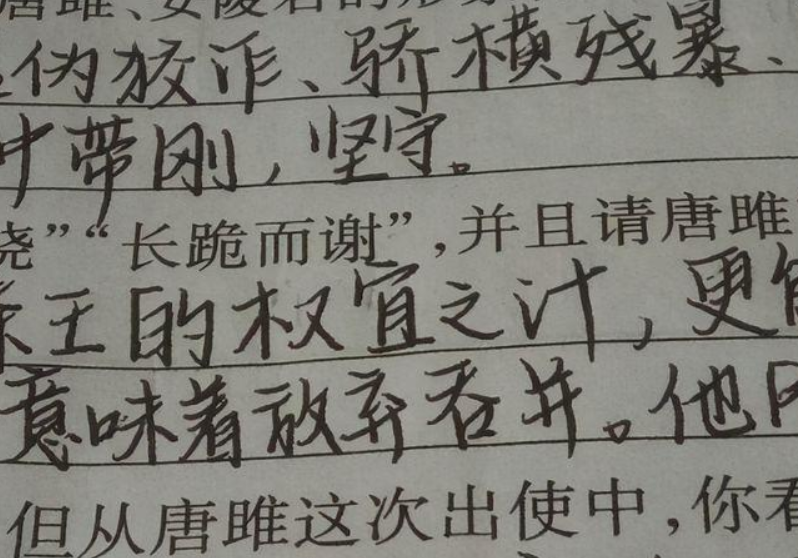 唐雎、安陵君的形
伪狡诈、骄横残暴、
中带刚，坚守。
挠”“长跪而谢”，并且请唐雎
秦王的权宜之计，更能
意味着放弃吞并。他
但从唐雎这次出使中，你看